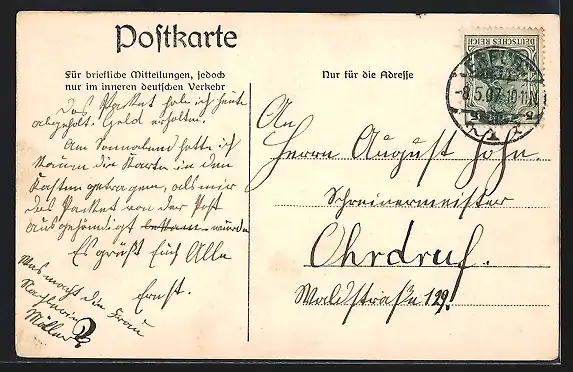 Postkarte
Für briefliche Mitteilungen, jedoch
nur im inneren deutschen Verkehr
Nur für die Adresse
DEUTSCHES REICH
ERFURT
-8.5.07.10-11N
Das Packet habe ich heute
abgeholt. Geld erhalten.
Am Sonnabend hatte ich
kaum die Karte in den
Kasten getragen, als mir
das Packet von der Post
ausgehändigt bekam wurde
Es grüßt Euch Alle
Ernst.
Was macht die Frau
Nachbarin
Möller?
An
Herrn August John.
Schreinermeister
Ohrdruf.
Waldstraße 129.